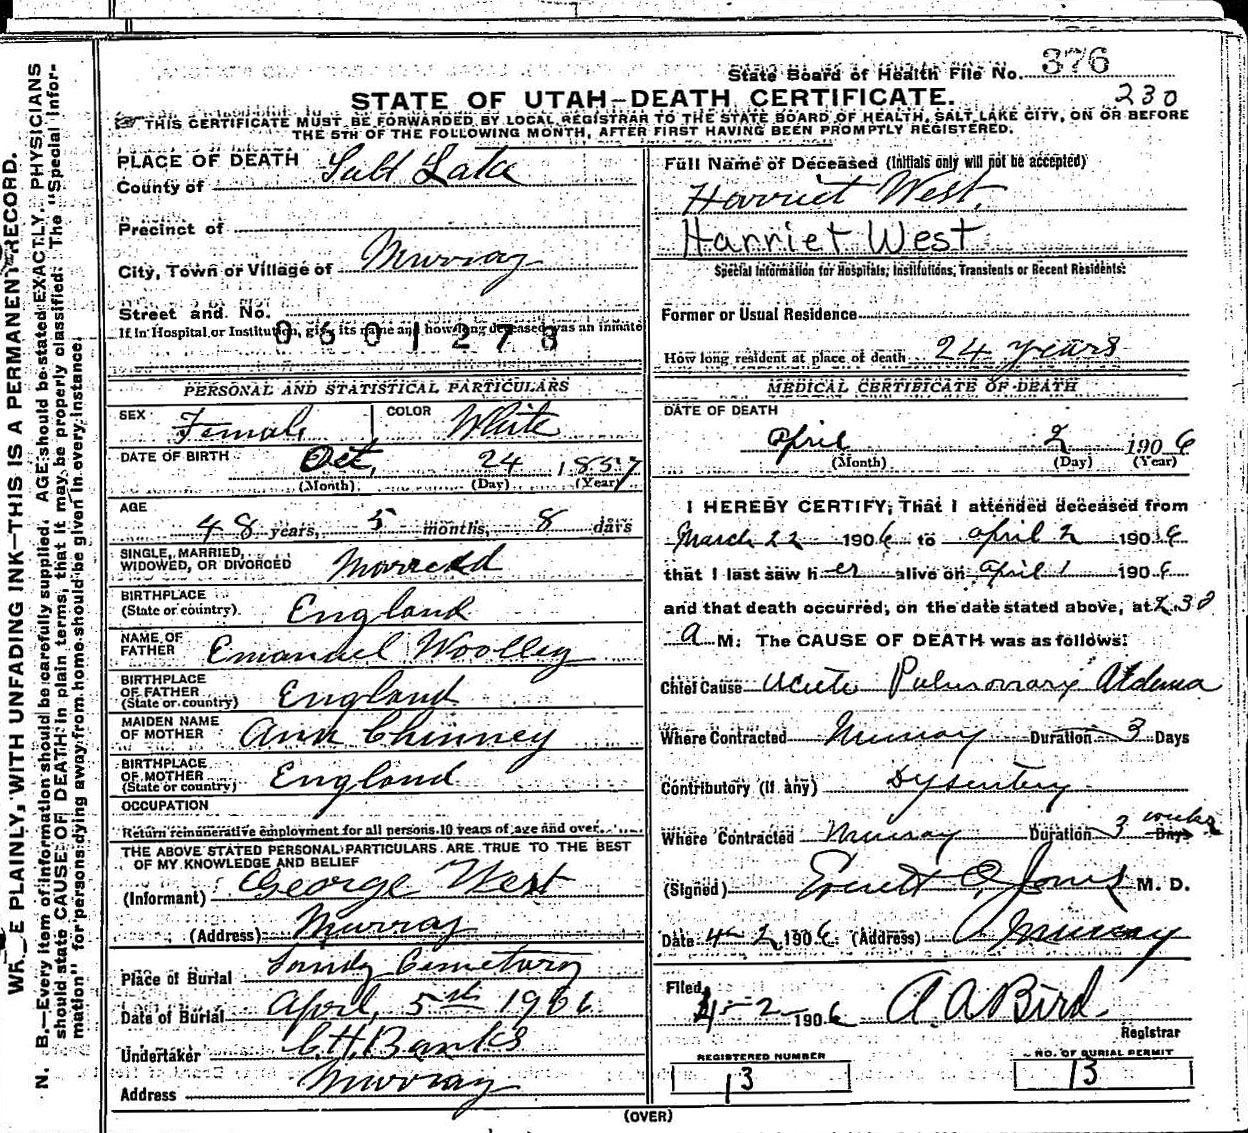 State Board of Health File No. 376
230
STATE OF UTAH—DEATH CERTIFICATE.
THIS CERTIFICATE MUST BE FORWARDED BY LOCAL REGISTRAR TO THE STATE BOARD OF HEALTH, SALT LAKE CITY, ON OR BEFORE
THE 5TH OF THE FOLLOWING MONTH, AFTER FIRST HAVING BEEN PROMPTLY REGISTERED.
PLACE OF DEATH
County of Salt Lake
Precinct of
City, Town or Village of Murray
Street and No.
If in Hospital or Institution, give its name and how long deceased was an inmate
0601273
PERSONAL AND STATISTICAL PARTICULARS
SEX Female COLOR White
DATE OF BIRTH Oct, 24 1857
(Month) (Day) (Year)
AGE
48 years, 5 months, 8 days
SINGLE, MARRIED, WIDOWED, OR DIVORCED Married
BIRTHPLACE
(State or country) England
NAME OF FATHER Emanuel Woolley
BIRTHPLACE OF FATHER
(State or country) England
MAIDEN NAME OF MOTHER Ann Chinney
BIRTHPLACE OF MOTHER
(State or country) England
OCCUPATION
Return remunerative employment for all persons 10 years of age and over
THE ABOVE STATED PERSONAL PARTICULARS ARE TRUE TO THE BEST
OF MY KNOWLEDGE AND BELIEF
(Informant) George West
(Address) Murray
Place of Burial Sandy Cemetary
Date of Burial April, 5th 1906
Undertaker C.H. Banks
Address Murray
Full Name of Deceased (Initials only will not be accepted)
Harriet West.
Harriet West
Special Information for Hospitals, Institutions, Transients or Recent Residents:
Former or Usual Residence
How long resident at place of death 24 years
MEDICAL CERTIFICATE OF DEATH
DATE OF DEATH
April 2 1906
(Month) (Day) (Year)
I HEREBY CERTIFY, That I attended deceased from
March 22 1906 to April 2 1906
that I last saw her alive on April 1 1906
and that death occurred, on the date stated above, at 2.30
A M: The CAUSE OF DEATH was as follows:
Chief Cause Acute Pulmonary Œdema
Where Contracted Murray Duration 3 Days
Contributory (if any) Dysentery
Where Contracted Murray Duration 3 weeks Days
(Signed) Everett O. Jones M. D.
Date 4- 2 1906 (Address) Murray
Filed
4-2- 1906 A.A Bird.
Registrar
REGISTERED NUMBER
13
NO. OF BURIAL PERMIT
13
(OVER)
WR E PLAINLY, WITH UNFADING INK—THIS IS A PERMANENT RECORD.
N. B.—Every item of information should be carefully supplied. AGE should be stated EXACTLY. PHYSICIANS
should state CAUSE OF DEATH in plain terms, that it may be properly classified. The "Special Infor-
mation" for persons dying away from home should be given in every instance.